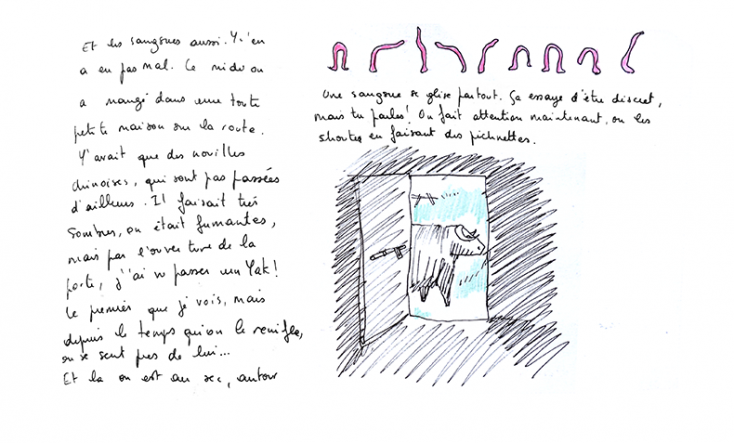 Et les sangsues aussi. Y'en
a en pas mal. Ce midi on
a mangé dans une toute
petite maison sur la route.
Y'avait que des nouilles
chinoises, qui sont pas passées
d'ailleurs. Il faisait très
sombres, on était fumantes,
mais par l'ouverture de la
porte, j'ai vu passer un Yak!
Le premier que je vois, mais
depuis le temps qu'on le renifle,
on se sent près de lui...
Et la on est au sec, autour
Une sangsue se glisse partout. Ça essaye d'être discret,
mais tu parles! On fait attention maintenant, on les
shoote en faisant des pichnettes.